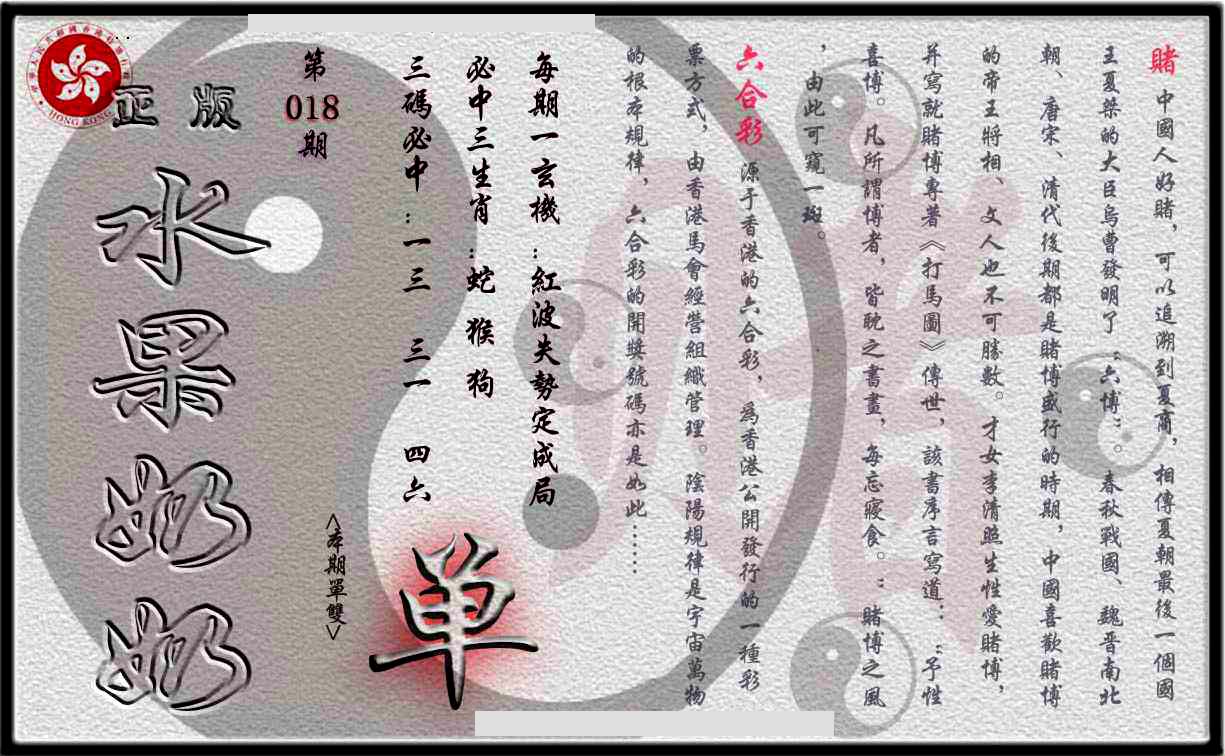 賭 中國人好賭，可以追溯到夏商，相傳夏朝最後一個國
王夏桀的大臣烏曹發明了“六博”。春秋戰國、魏晉南北
朝、唐宋、清代後期都是賭博盛行的時期，中國喜歡賭博
的帝王將相、文人也不可勝數。才女李清照生性愛賭博，
并寫就賭博專著《打馬圖》傳世，該書序言寫道：“予性
喜博。凡所謂博者，皆耽之書畫，每忘寢食。”賭博之風
，由此可窺一斑。
六合彩 源于香港的六合彩，爲香港公開發行的一種彩
票方式，由香港馬會經營組織管理。陰陽規律是宇宙萬物
的根本規律，六合彩的開獎號碼亦是如此……
每期一玄機：紅波失勢定成局
必中三生肖：蛇 猴 狗
三碼必中：一三 三一 四六
单
<本期單雙>
第
018
期
正版
水果奶奶
HONG KONG